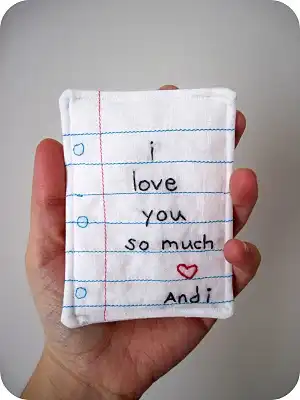 i
love
you
so much
Andi